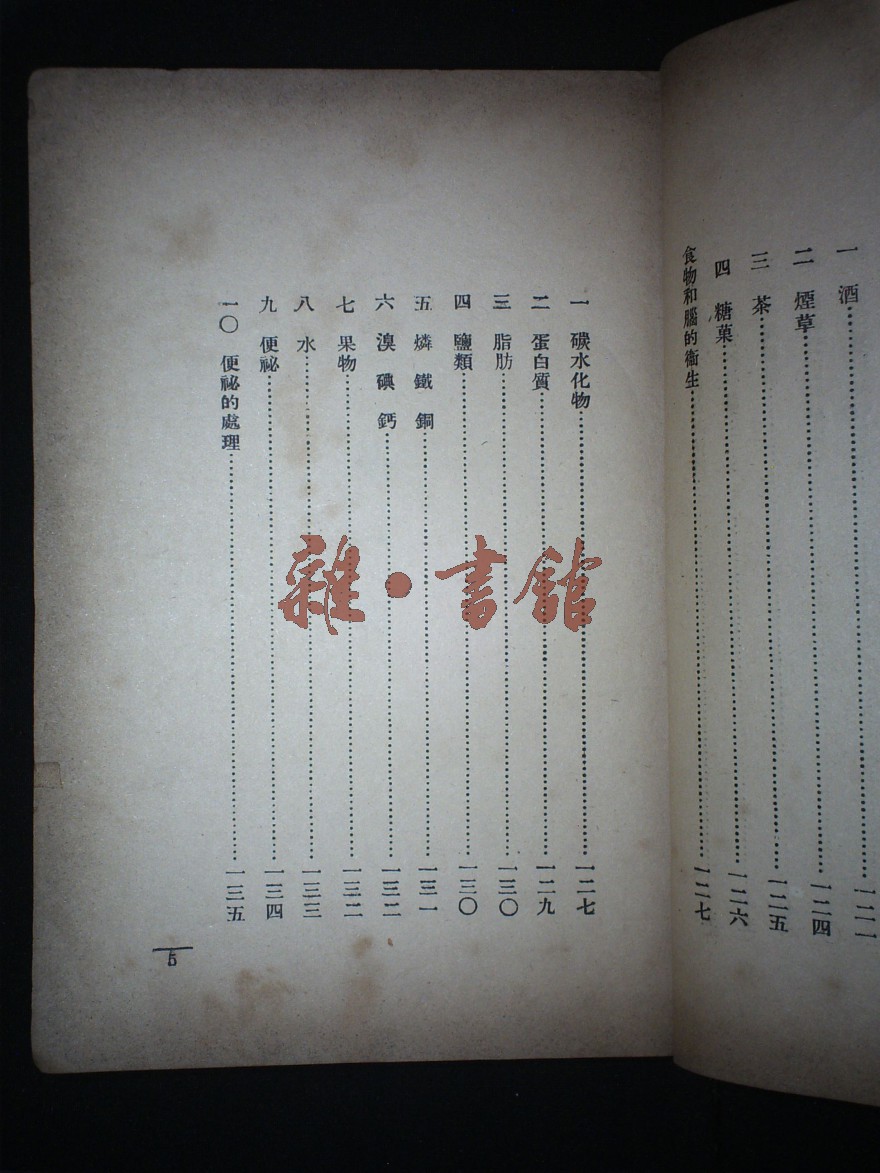 一 酒……一二一
二 煙草……一二四
三 茶……一二五
四 糖菓……一二六
食物和腦的衛生……一二七
一 碳水化物……一二七
二 蛋白質……一二九
三 脂肪……一三〇
四 鹽類……一三〇
五 燐 鐵 銅……一三一
六 溴 碘 鈣……一三二
七 果物……一三二
八 水……一三三
九 便祕……一三四
一〇 便祕的處理……一三五
5
雜·書館